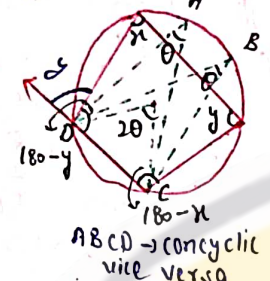 A
x
θ
B
θ
y
y
D
2θ
180-y
C
180-x
ABCD → concyclic
vice versa